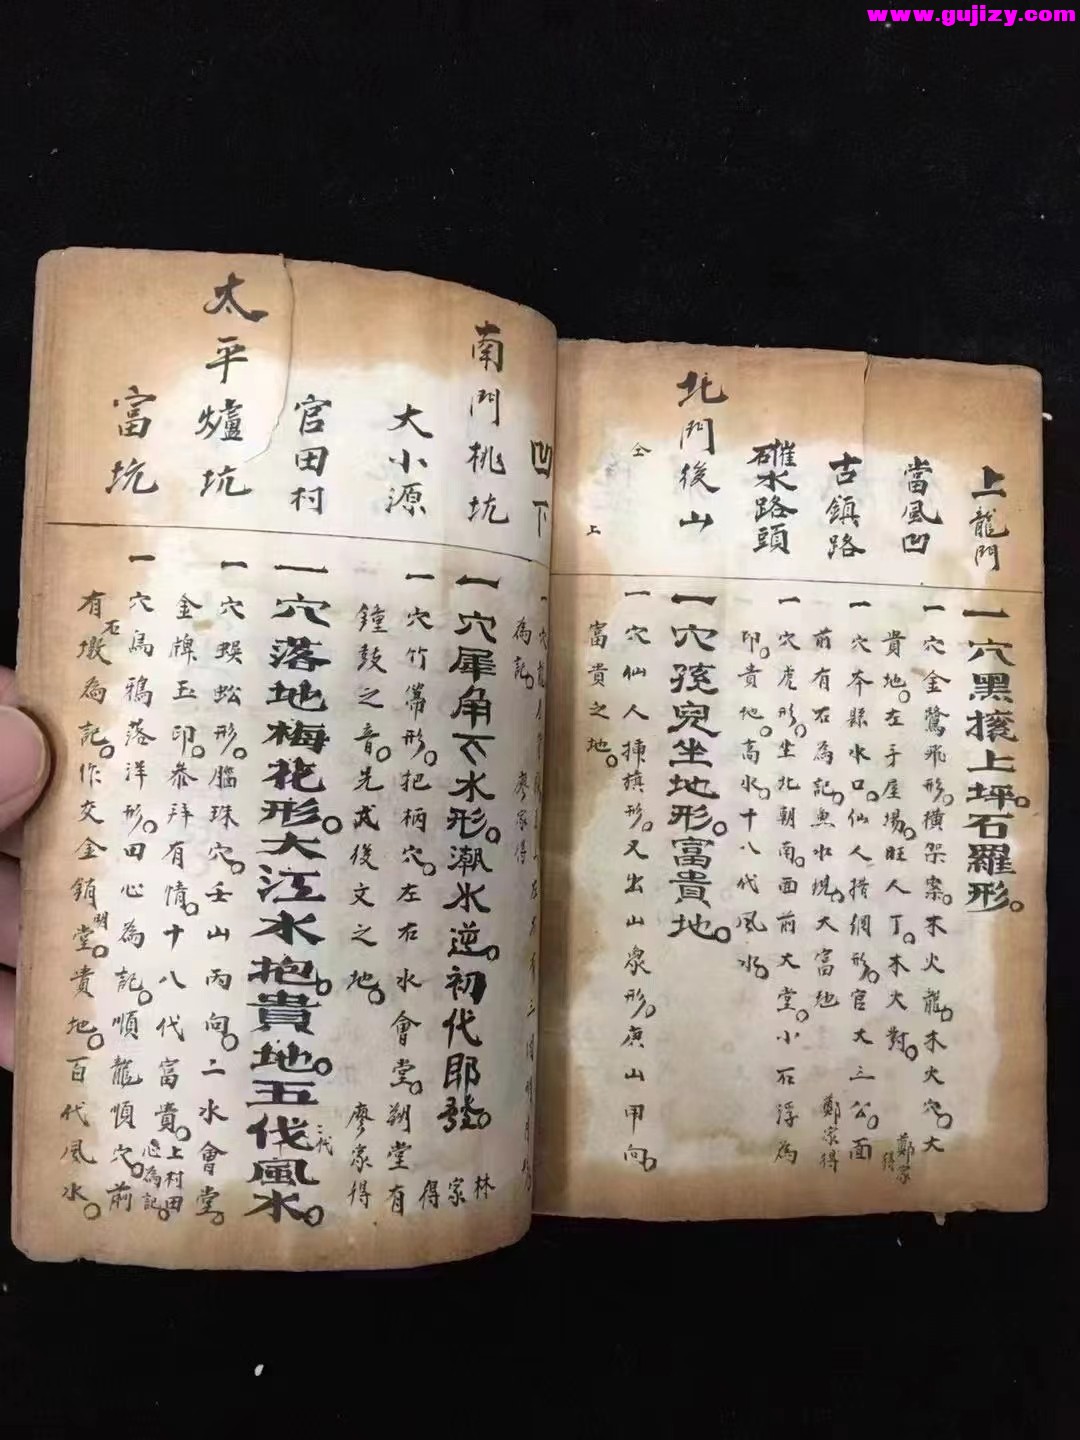 www.gujizy.com
上龍門
一穴黑擡上坪石羅形
當風凹
一穴金鵞飛形橫架案木火龍木火穴大
貴地左手屋場旺人丁木火對
鄭家得
古鎮路
一穴本縣水口仙人撒網形官大三公面
前有石為記無水現大富地
鄭家得
磪水路頭
一穴虎形坐北朝南面前大堂小石浮為
印貴地高水十八代風水
北門後山
一穴孩兒坐地形富貴地
仝
一穴仙人插旗形又出山象形庚山甲向
上
富貴之地
凹下
一穴
為記
廖家得
南門桃坑
一穴犀角下水形潮水逆初代即發
林家得
大小源
一穴竹篙形把柄穴左右水會堂朔堂有
鐘鼓之音先武後文之地
廖家得
官田村
一穴落地梅花形大江水抱貴地五代風水
三代
太平爐坑
一穴蜈蚣形腦珠穴壬山丙向二水會堂
金牌玉印恭拜有情十八代富貴
上村田心為記
富坑
一穴烏鴉落洋形田心為記順龍順穴前
有石墩為記作交金銷明堂貴地百代風水